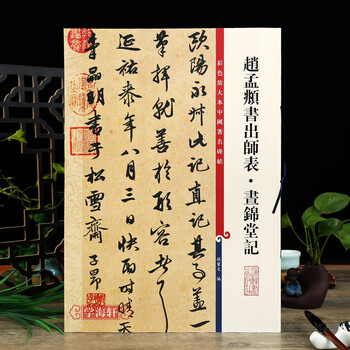 趙孟頫書出師表·晝錦堂記
彩色放大本中國著名碑帖
孫寶文 編
歐陽永叔此記直記其事蓋一
筆揮就善於形容者
延祐柒年八月三日快雨時晴天
明書于松雪齋
子昂
学海轩